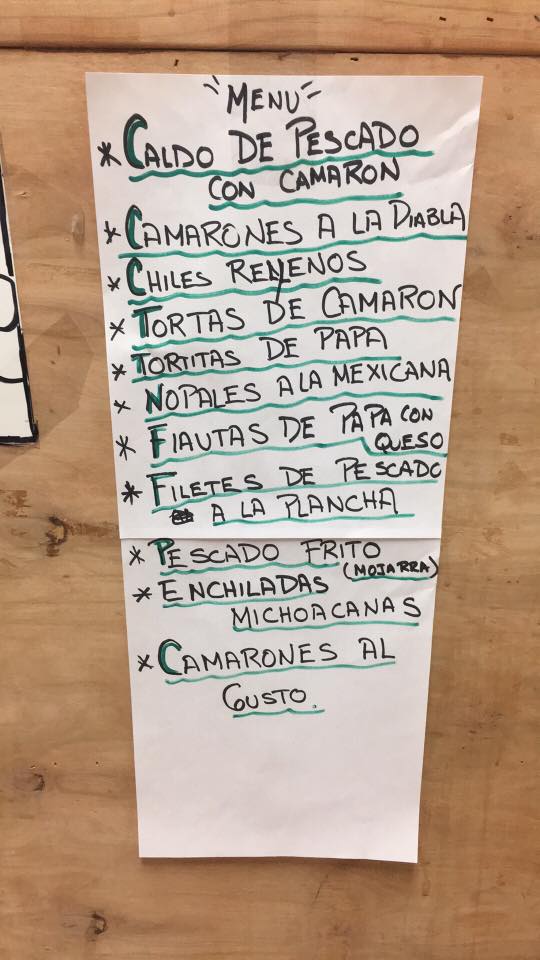 "MENU"
* CALDO DE PESCADO
CON CAMARON
* CAMARONES A LA DIABLA
* CHILES REYENOS
* TORTAS DE CAMARON
* TORTITAS DE PAPA
* NOPALES A LA MEXICANA
* FIAUTAS DE PAPA CON
QUESO
* FILETES DE PESCADO
A LA PLANCHA
* PESCADO FRITO
(MOJARRA)
* ENCHILADAS
MICHOACANAS
* CAMARONES AL
GUSTO.